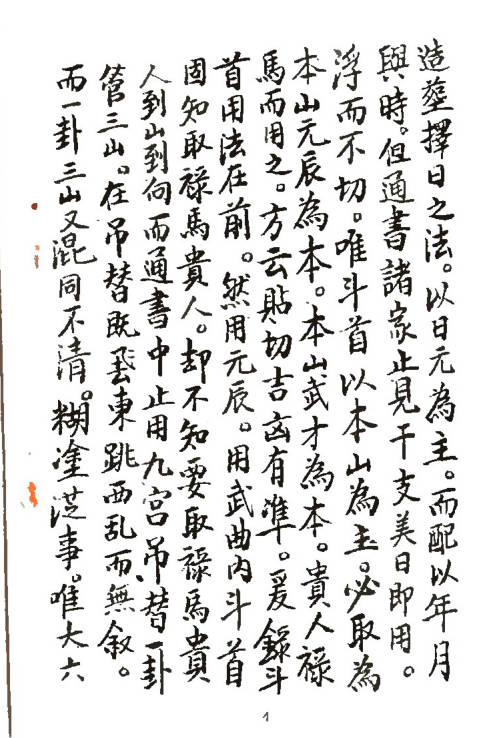 造塟擇日之法。以日元為主。而配以年月
與時。但通書諸家止見干支美日即用。
浮而不切。唯斗首以本山為主。必取為
本山元辰為本。本山武才為本。貴人祿
馬而用之。方云貼切吉凶有準。爰錄斗
首用法在前。然用元辰。用武曲内斗首
固知取祿馬貴人。却不知要取祿馬貴
人到山到向而通書中止用九宮吊替一卦
管三山。在吊替既飛東跳西乱而無叙。
而一卦三山又混同不清。糊塗誤事。唯大六
1